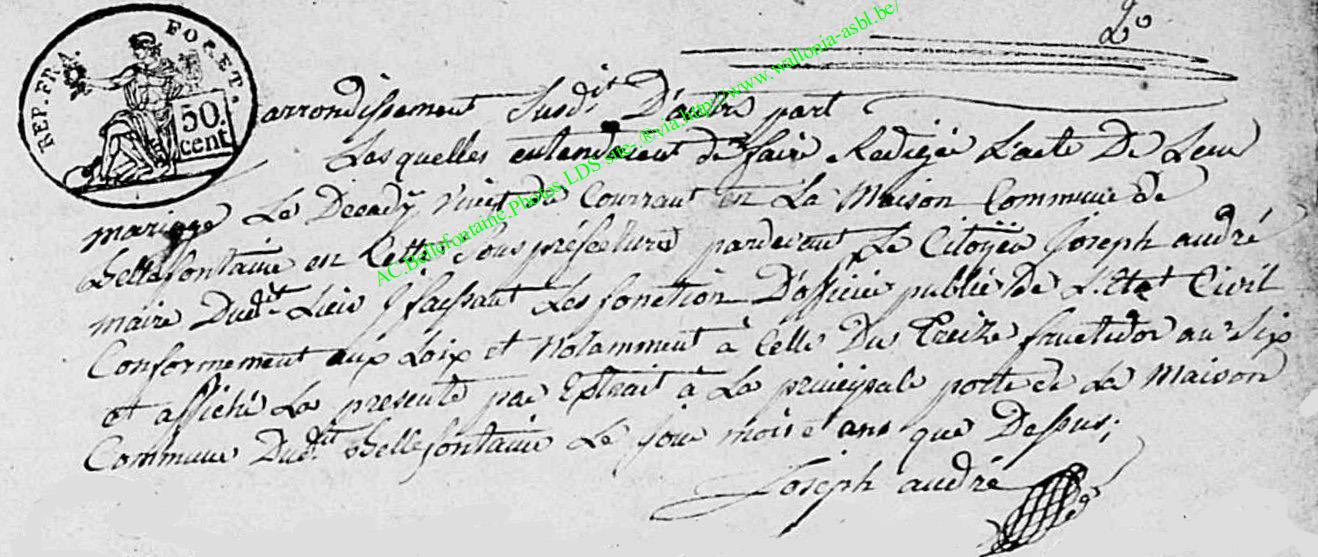 REP. FRA. FORET.
50. cent
2o
arrondissement Susdit D'autre part
Lesquelles entendeseut de faire Redigée L'acte De Leur
mariage Le Decady vinct du Courrant en La Maison Commune de
Bellefontaine en Cette Sous préfecture pardevent Le Citoÿen Joseph andré
maire Dudit Lieu ÿ faissant Les fonction D'officier public De L'etat Civil
Conformement aux Loix et Notamment à Celle Du Treize fructidor an Six
et affiché La presente par Extrait à La principale porte de La Maison
Commune Dudit Bellefontaine Le jour mois et ans que Dessus;
Joseph andré
AC.Bellefontaine.Photos.LDS site-.®via http://www.wallonia-asbl.be/